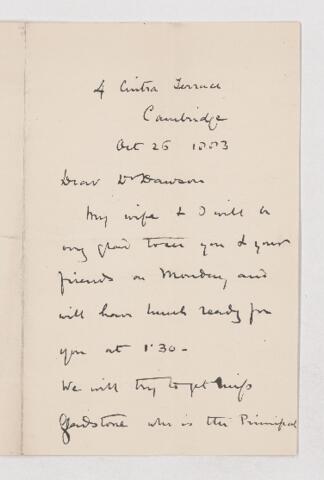 4 Cintra Terrace
Cambridge
Oct 26 1883
Dear Dr Dawson
My wife & I will be
very glad to see you & your
friends on Monday and
will have lunch ready for
you at 1.30 -
We will try to get Miss
Gladstone who is the Principal